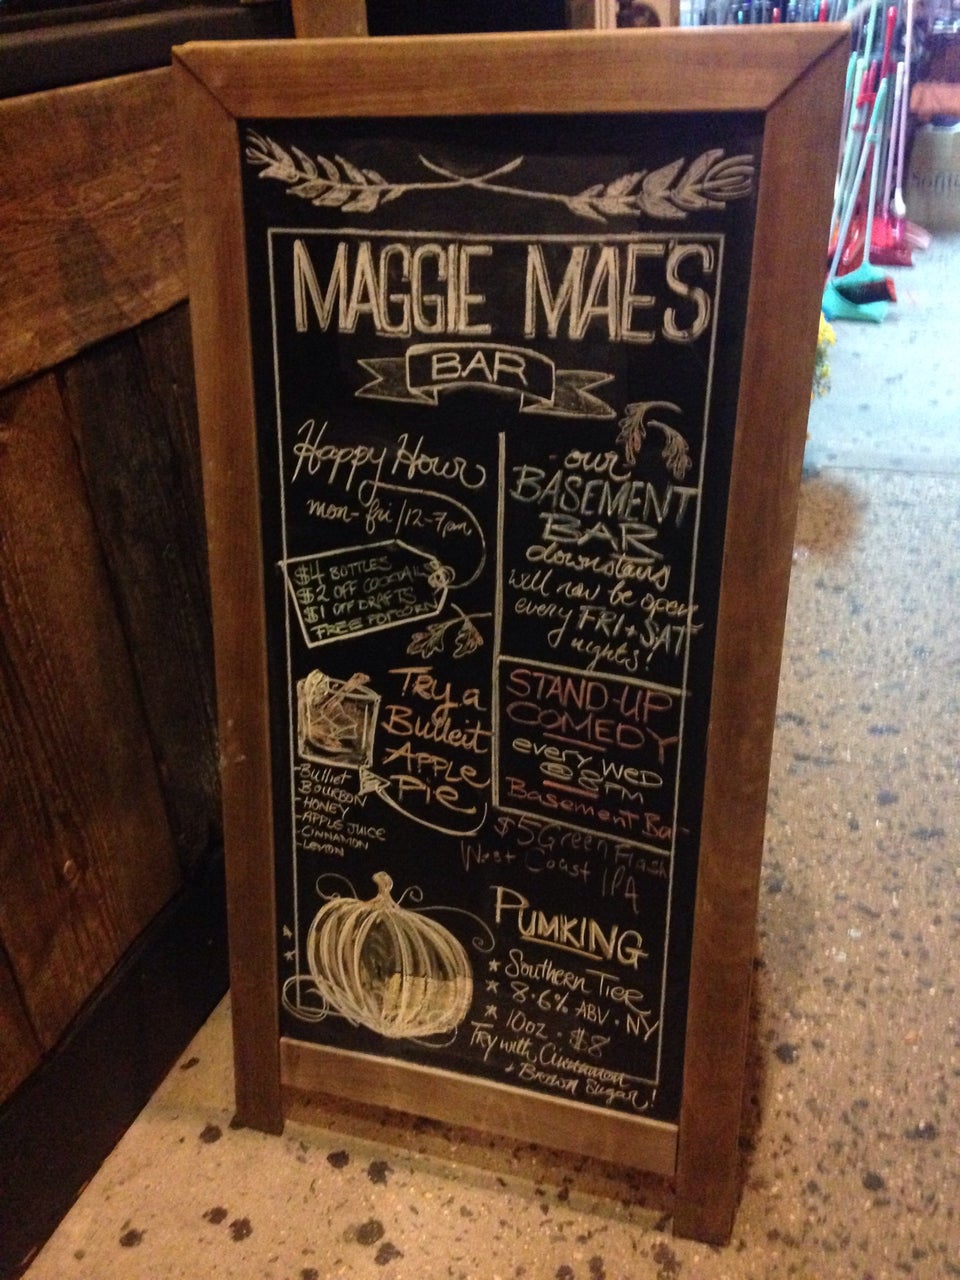 MAGGIE MAE'S
BAR
Happy Hour
mon-fri/12-7pm
$4 BOTTLES
$2 OFF COCKTAILS
$1 OFF DRAFTS
FREE POPCORN
TRY a
Bulleit
APPLE
Pie
-Bulliet
BOURBON
-HONEY
-APPLE JUICE
-CINNAMON
-LEMON
-our-
BASEMENT
BAR
downstairs
will now be open
every FRI + SAT
nights!
STAND-UP
COMEDY
every WED
@ 8 PM
Basement Ba
$5 Green Flash
West Coast IPA
PUMKING
* SOUTHERN TIER
* 8.6% ABV • NY
* 10oz • $8
TRY with Cinnamon
+ Brown Sugar!